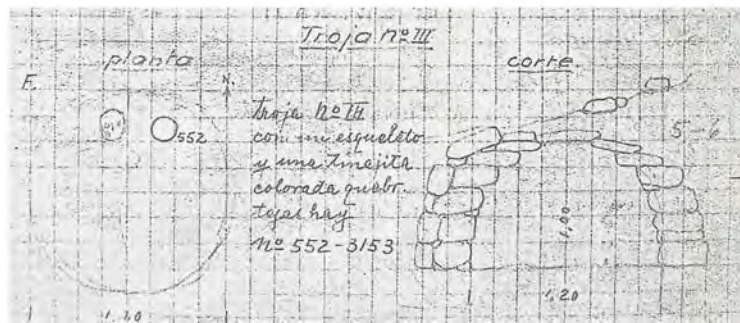 Troja nº III
planta
corte.
E.
N
552
Troja Nº III
con un esqueleto
y una tinajita
colorada quebr.
tejas hay
Nº 552-3153
5-6
1,00
1,20
1,20